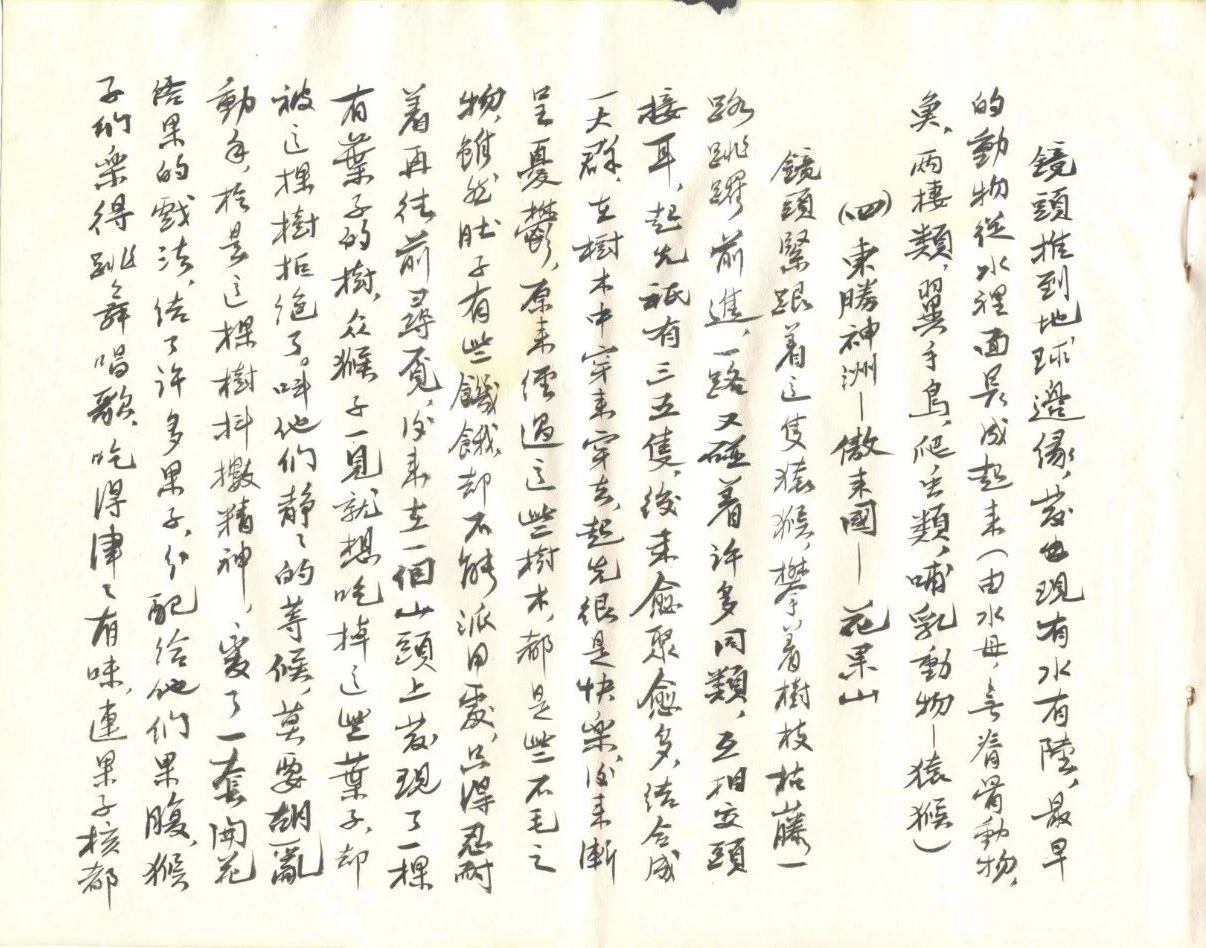 鏡頭推到地球邊緣，發現有水有陸，最早
的動物從水裡面長成起來（由水母，無脊骨動物，
魚，兩棲類，翼手鳥，爬虫類，哺乳動物—猿猴）
(四)東勝神洲—傲来國—花果山
鏡頭緊跟着这隻猿猴，攀着樹枝枯藤一
路跳躍前進，一路又碰着许多同類，互相交頭
接耳，起先祇有三五隻，後来愈聚愈多，结合成
一大群，在樹木中穿来穿去，起先很是快樂，後来漸
呈憂鬱，原来經過这些樹木，都是些不毛之
物，雖然肚子有些饑餓，却不能派用處，只得忍耐
着再往前尋覓，後来在一個山頭上发現了一棵
有葉子的樹，众猴子一見就想吃掉这些葉子，却
被这棵樹拒绝了。叫他们静〻的等候，莫要胡亂
動手，於是这棵樹抖擻精神，变了一套開花
结果的戲法，结了許多果子，分配给他们果腹，猴
子们樂得跳舞唱歌，吃得津〻有味，連果子核都